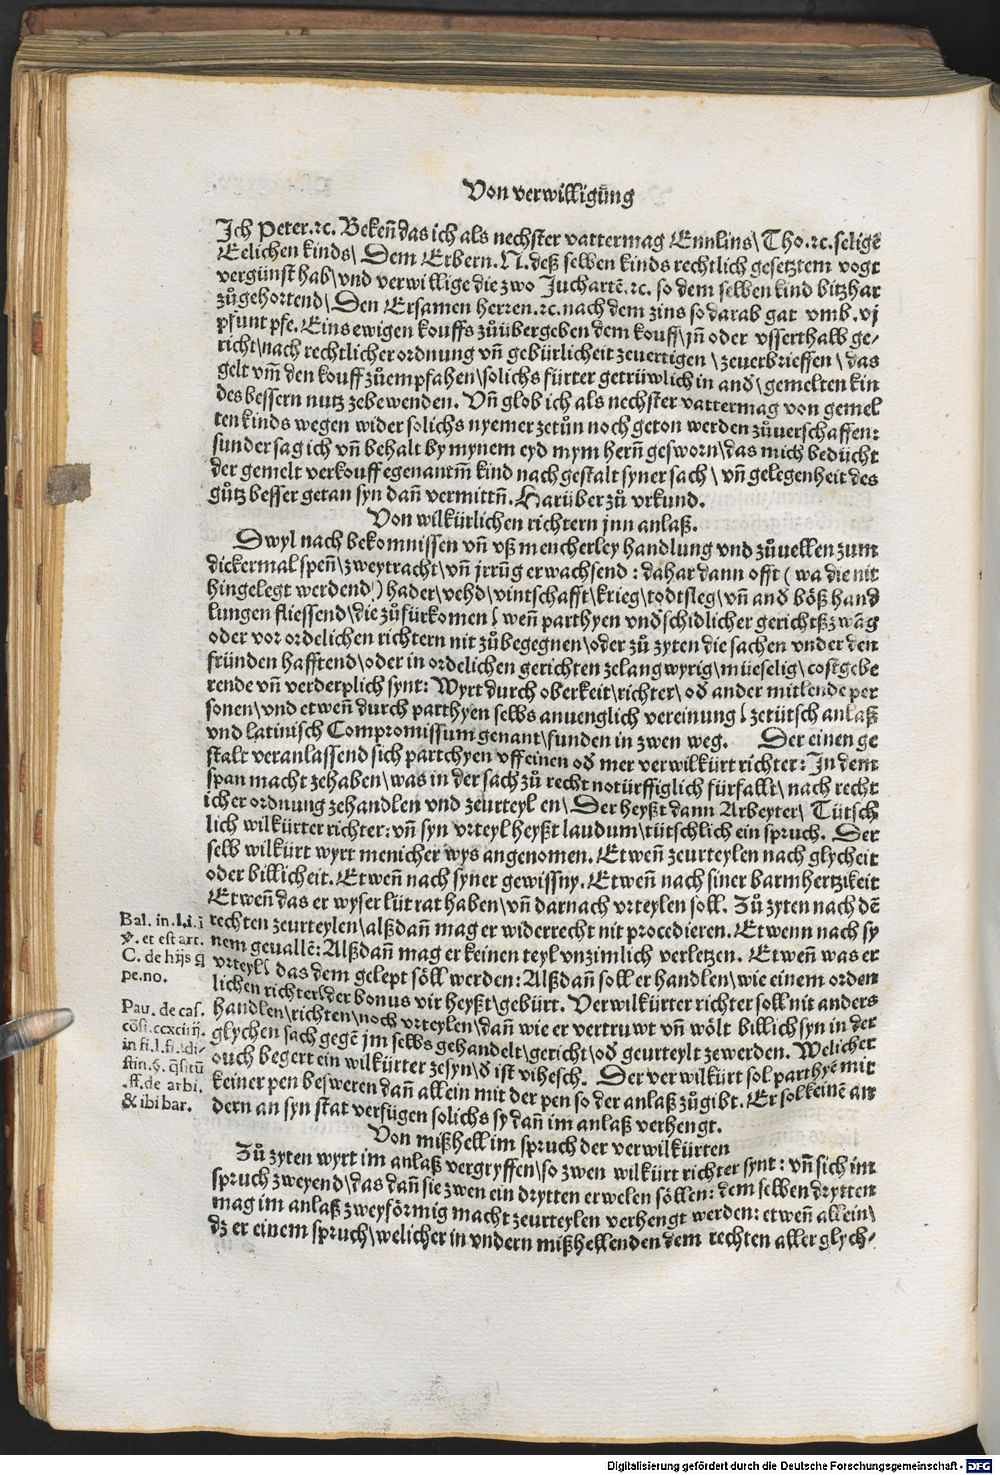 Von verwilligũng
Ich Peter.⁊c. Bekeñ das ich als nechster vattermag Ennlins\ Tho.⁊c. seligẽ
Eelichen kinds\ Dem Erbern. N. deß selben kinds rechtlich gesetztem vogt
vergünst hab\ vnd verwillige die zwo Juchartẽ.⁊c. so dem selben kind bitzhar
zůgehortend\ Den Ersamen herren.⁊c. nach dem zins so darab gat vmb.vj
pfunt pfe. Eins ewigen kouffs zůübergeben dem kouff\ jñ oder vsserthalb ge⸗
richt\ nach rechtlicher ordnung vñ gebürlicheit zeuertigen \ zeuerbrieffen \ das
gelt vm̃ den kouff zůempfahen\ solichs fürter getrüwlich in and̕\ gemelten kin
des bessern nutz zebewenden. Vñ glob ich als nechster vattermag von gemel
ten kinds wegen wider solichs nyemer zetůn noch geton werden zůuerschaffen:
sunder sag ich vñ behalt by mynem eyd mym herñ gesworn\ das mich bedücht
der gemelt verkouff egenantem̃ kind nach gestalt syner sach \ vñ gelegenheit des
gůtz besser getan syn dañ vermittñ. Harüber zů vrkund.
Von wilkürlichen richtern jnn anlaß.
Dwyl nach bekomnissen vñ vß mencherley handlung vnd zůuellen zum
dickermal speñ\ zweytracht\ vñ jrrũg erwachsend : dahar dann offt ( wa die nit
hingelegt werdend ) hader\ vehd\ vintschafft\ krieg\ todtsleg\ vñ and̕ böß hand
lungen fliessend\ die zůfürkomen ( weñ parthyen vnd̕schidlicher gerichtßzwãg
oder vor ordelichen richtern nit zůbegegnen\ oder zů zyten die sachen vnder den
fründen hafftend\ oder in ordelichen gerichten zelangwyrig\ müeselig\ costgebe
rende vñ verderplich synt: Wyrt durch oberkeit\ richter\ od̕ ander mitlende per
sonen\ vnd etweñ durch parthyen selbs anuenglich vereinung ( zetütsch anlaß
vnd latinisch Compromissum genant\ funden in zwen weg. Der einen ge
stalt veranlassend sich partchyen vff einen od̕ mer verwilkürt richter: In dem
span macht zehaben\ was in der sach zů recht notürffiglich fürfallt\ nach recht
icher ordnung zehandlen vnd zeurteyl en\ Der heyßt dann Arbeyter\ Tütsch
lich wilkürter richter: vñ syn vrteyl heyßt laudum\ tütschlich ein spruch. Der
selb wilkürt wyrt menicher wys angenomen. Etweñ zeurteylen nach glycheit
oder billicheit. Etweñ nach syner gewissny. Etweñ nach siner barmhertzikeit
Etweñ das er wyser lüt rat haben\ vñ darnach vrteylen soll. Zů zyten nach dẽ
rechten zeurteylen\ alßdañ mag er widerrecht nit procedieren. Etwenn nach sy
nem geuallẽ: Alßdañ mag er keinen teyl vnzimlich verletzen. Etweñ was er
vrteyl( das dem gelept söll werden: Alßdañ soll er handlen\ wie einem orden
lichen richter\ der bonus vir heyßt\ gebürt. Verwilkürter richter soll nit anders
handlen\ richten\ noch vrteylen\ dañ wie er vertruwt vñ wölt billich syn in der
glychen sach gegẽ jm selbs gehandelt\ gericht\ od̕ geurteylt zewerden. Welicher
ouch begert ein wilkürter zesyn\ d̕ ist vihesch. Der verwilkürt sol parthyẽ mit
keiner pen besweren dañ allein mit der pen so der anlaß zůgibt. Er sol keinẽ an
dern an syn stat verfügen solichs sy dañ im anlaß verhengt.
Von mißhell im spruch der verwilkürten
Zů zyten wyrt im anlaß vergryffen\ so zwen wilkürt richter synt : vñ sich im
spruch zweyend\ das dañ sie zwen ein drytten erwelen söllen: dem selben drytten
mag im anlaß zweyförmig macht zeurteylen verhengt werden: etweñ allein\
dz er einem spruch\ welicher in vndern mißhellenden dem rechten aller glych⸗
Bal. in.l.i.ĩ
et est art.
C. de hijs q̃
pe.no.
Pau. de cas.
cõsi.ccxciiij.
in fi.l.fi.
stin.§. q̃situ̅
.ff.de arbi.
& ibi bar.
Digitalisierung gefördert durch die Deutsche Forschungsgemeinschaft - DFG